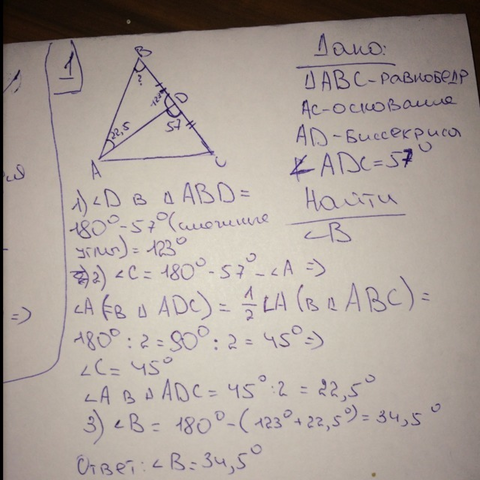 1
B
?
123°
D
22,5
57
A
C
Дано:
ΔABC-равнобедр
AC-основание
AD-биссекриса
∠ADC=57°
Найти
∠B
1) ∠D в ΔABD=
180°-57°(смежные
углы)=123°
2) ∠C=180°-57°-∠A=>
∠A(в ΔADC)=1/2∠A(в ΔABC)=
180°:2=90°:2=45°=>
∠C=45°
∠A в ΔADC=45°:2=22,5°
3) ∠B=180°-(123°+22,5°)=34,5°
Ответ:∠B=34,5°
=>